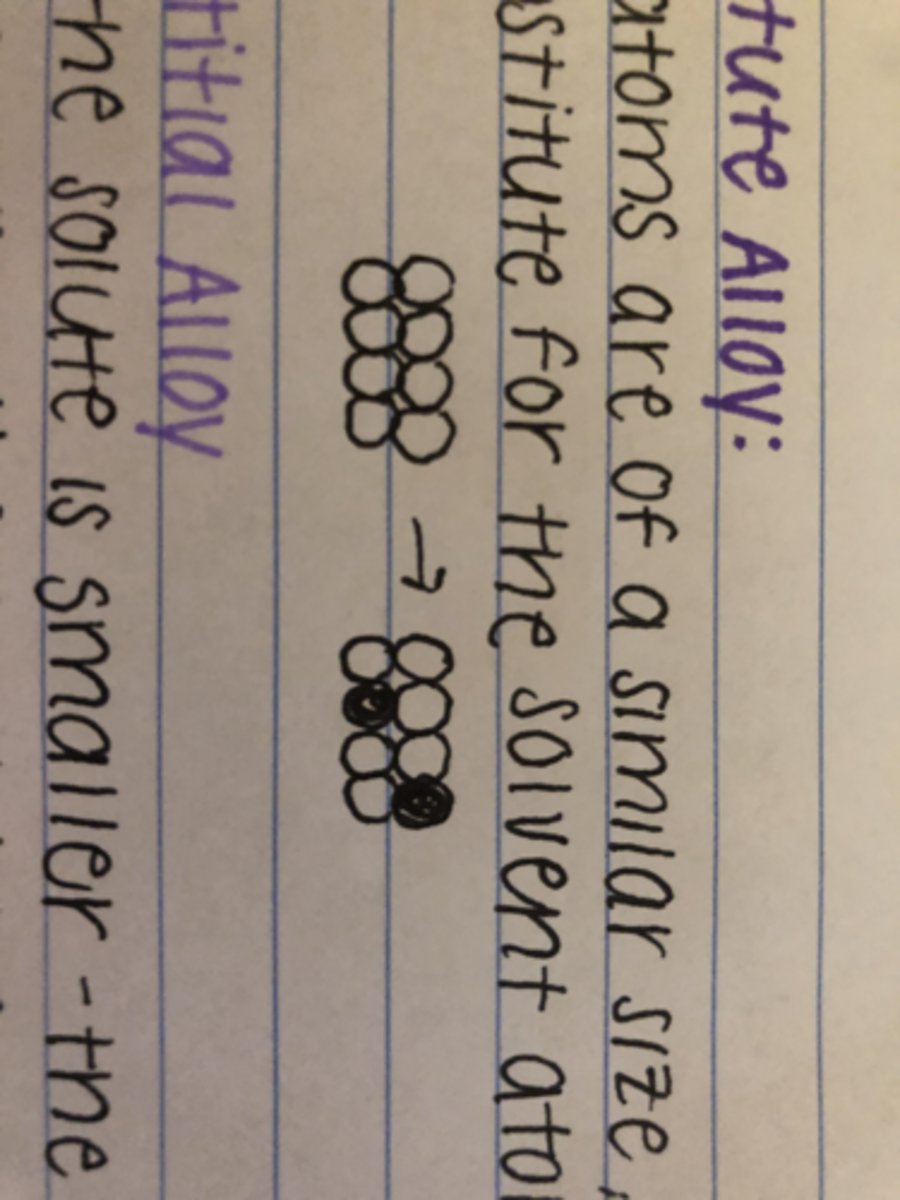 tute Alloy:
atoms are of a similar size,
stitute for the solvent ato
→
titial Alloy
the solute is smaller - the